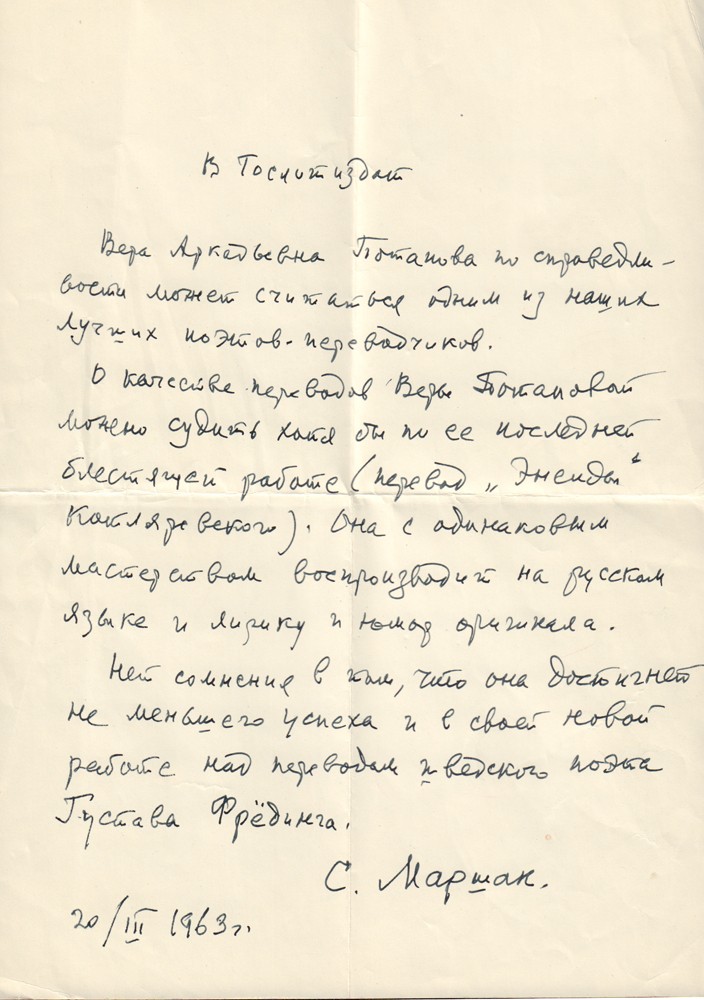 В Гослитиздат
Вера Аркадьевна Потапова по справедли-
вости может считаться одним из наших
лучших поэтов-переводчиков.
О качестве переводов Веры Потаповой
можно судить хотя бы по ее последней
блестящей работе (перевод „Энеиды“
Котляревского). Она с одинаковым
мастерством воспроизводит на русском
языке и лирику и юмор оригинала.
Нет сомнения в том, что она достигнет
не меньшего успеха и в своей новой
работе над переводом шведского поэта
Густава Фрёдинга.
С. Маршак.
20/III 1963 г.